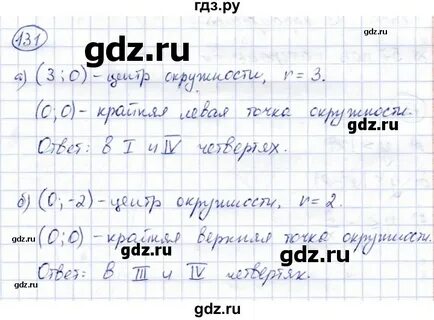 гдз.ру
131
gdz.ru
а) (3;0) - центр окружности, r = 3.
gdz.ru
gdz.ru
(0;0) - крайняя левая точка окружности.
Ответ: в I и IV четвертях.
gdz.ru
б) (0;-2) - центр окружности, r = 2.
gdz.ru
gdz.ru
(0;0) - крайняя верхняя точка окружности.
Ответ: в III и IV четвертях.
gdz.ru